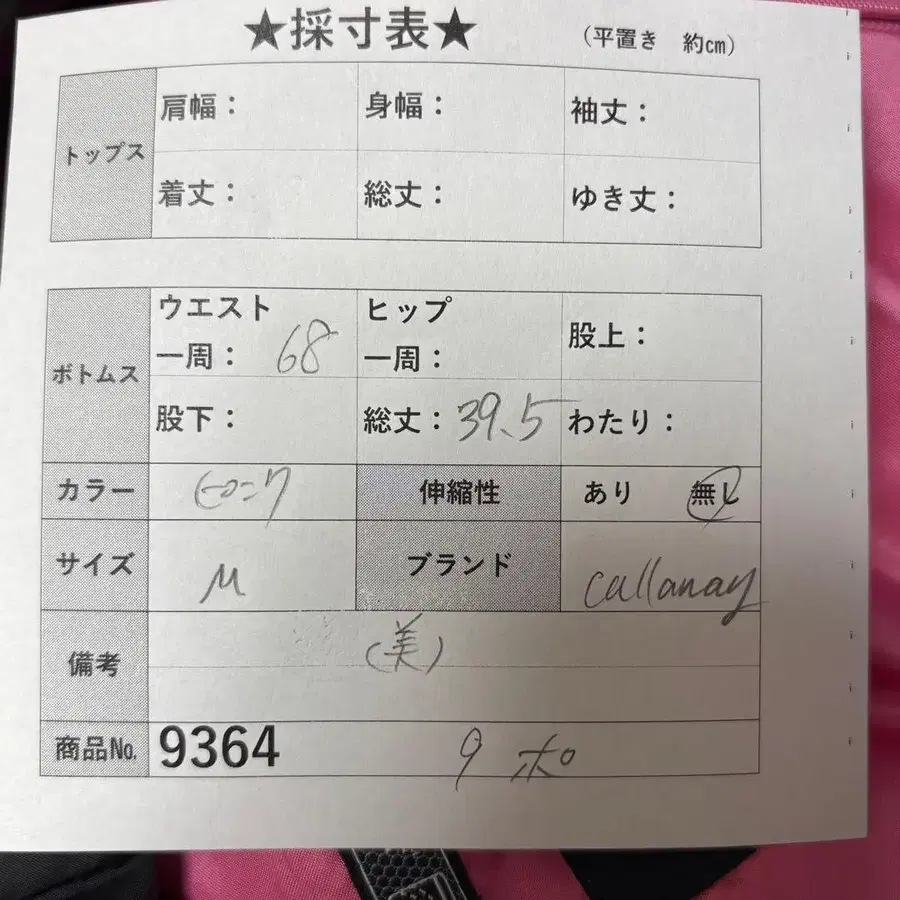 ★採寸表★ (平置き 約cm)
トップス
肩幅： 身幅： 袖丈：
着丈： 総丈： ゆき丈：
ボトムス
ウエスト一周： 68 ヒップ一周： 股上：
股下： 総丈： 39.5 わたり：
カラー ピンク 伸縮性 あり 無し
サイズ M ブランド callaway
備考 (美)
商品No. 9364 9 ポ